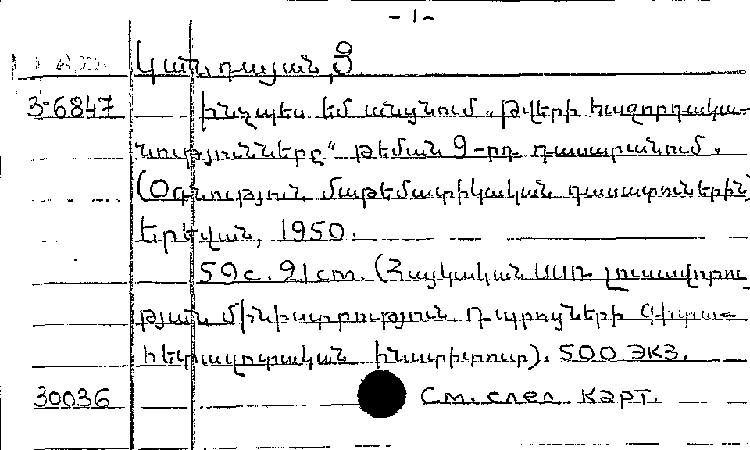 - 1 -
Կանդայան, Ֆ
3-6847 Ինչպես եմ անցնում „Թվերի հաջորդակա-
նությունները“ թեման 9-րդ դասարանում.
(Օգնություն մաթեմատիկական դասատուներին)
Երևան, 1950.
59с. 21ст. (Հայկական ՍՍՌ լուսավորու
թյան մինիստրություն Դպրոցների Գիտա-
հետազոտական ինստիտուտ). 500 экз.
30036 См. след. карт.